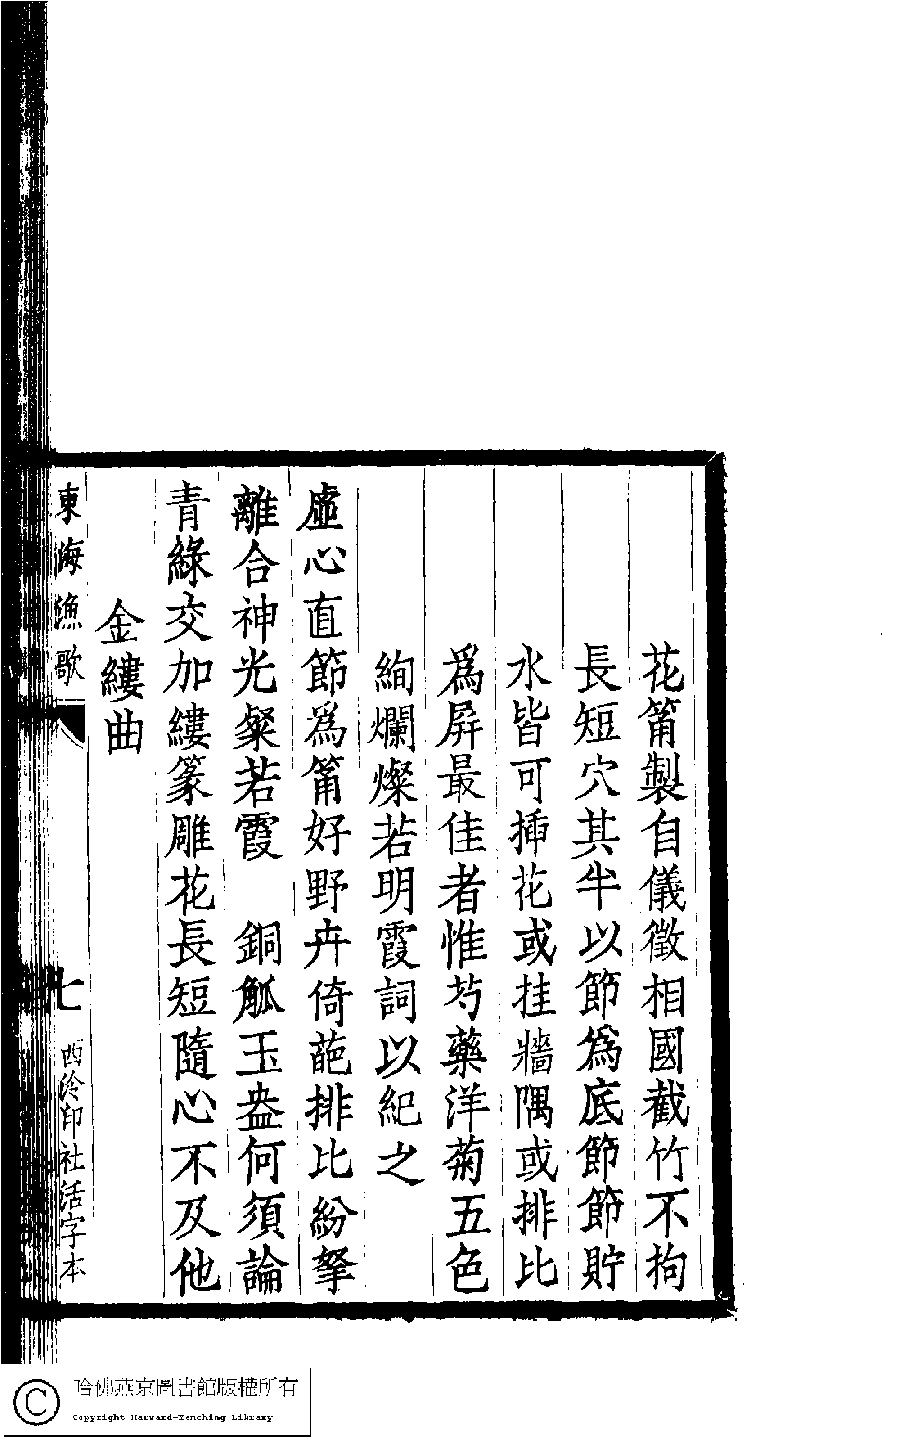 花筩製自儀徵相國截竹不拘
長短穴其半以節爲底節節貯
水皆可揷花或挂牆隅或排比
爲屏最佳者惟芍藥洋菊五色
絢爛燦若明霞詞以紀之
虛心直節爲筩好野卉倚葩排比紛拏
離合神光粲若霞　銅觚玉盎何須論
青綠交加縷篆雕花長短隨心不及他
金縷曲
東海漁歌
七
西泠印社活字本
哈佛燕京圖書館版權所有
Copyright Harvard-Yenching Library